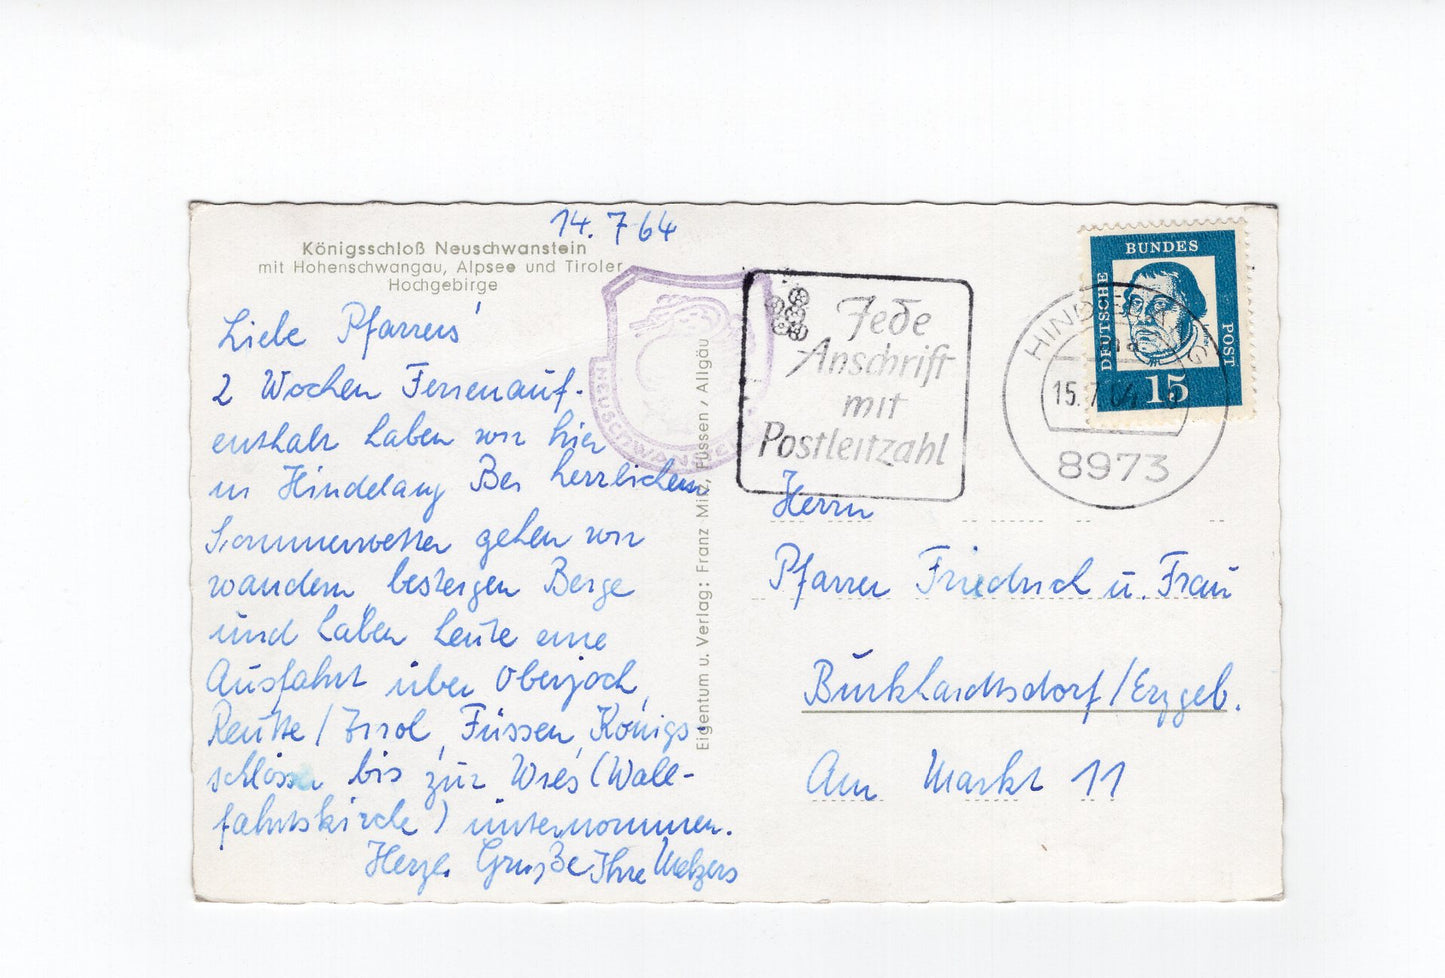 14.7.64
Königsschloß Neuschwanstein
mit Hohenschwangau, Alpsee und Tiroler
Hochgebirge
Liebe Pfarrers'
2 Wochen Ferienauf-
enthalt haben wir hier
in Hindelang Bei herrlichem
Sommerwetter gehen wir
wandern besteigen Berge
und haben heute eine
Ausfahrt über Oberjoch,
Reutte/Tirol, Füssen, Königs-
schlösser bis zur Wies (Wall-
fahrtskirche) unternommen.
Herzl. Grüße Ihre Melzers
Eigentum u. Verlag: Franz Milz, Füssen, Allgäu
NEUSCHWANSTEIN
Jede
Anschrift
mit
Postleitzahl
HINDELANG
15.7.64
8973
DEUTSCHE
BUNDES
POST
15
Herrn
Pfarrer Friedrich u. Frau
Burkhardtsdorf/Erzgeb.
Am Markt 11